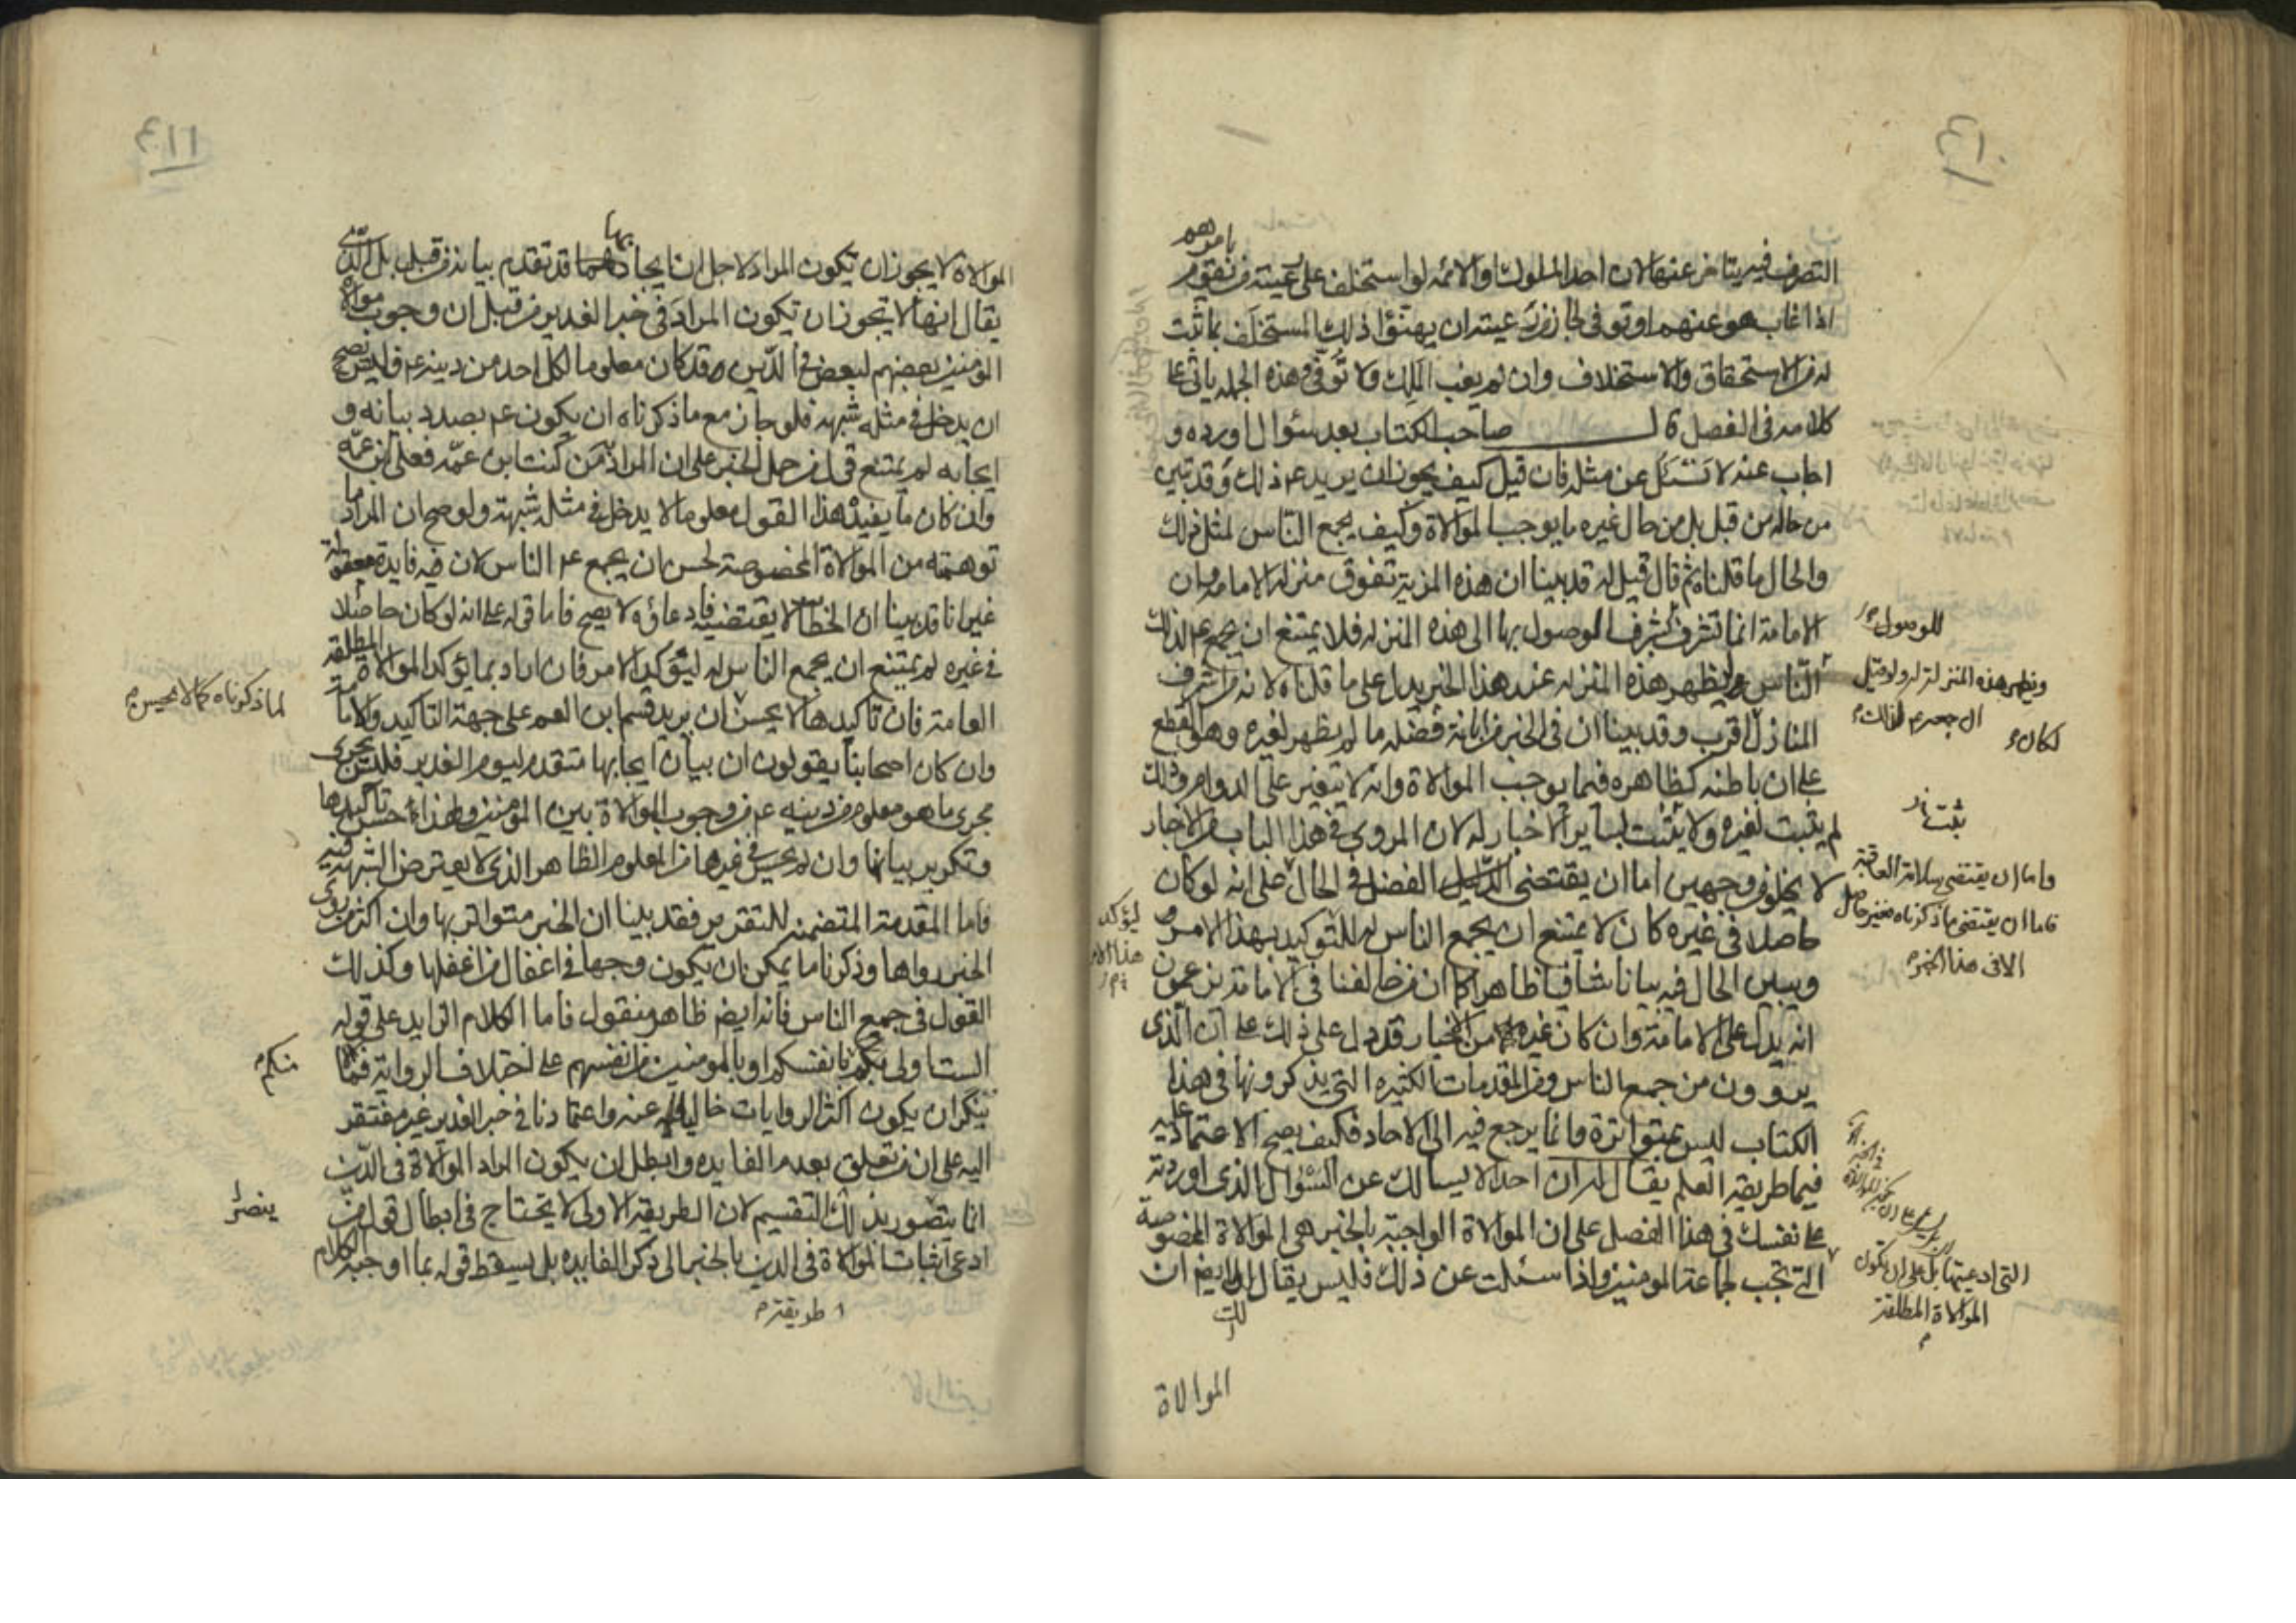 بامورهم
التصرف فيه يتاخر عنها لان احد الملوك او الائمه لو استخلف على رعيته من يقوم
اذا غاب هو عنهم او توفى لجاز من رعيته ان يهنؤا ذلك المستخلف بما ثبت
له من الاستحقاق والاستخلاف وان لم يغب الملك ولا توفى وهذه الجمله ياتى على
كلامه فى الفصل قال صاحب الكتاب بعد سئوال اورده و
اجاب عنه لا تسئل عن مثله فان قيل كيف يجوز ان يريد عم ذلك وقد تبين
من حاله من قبل بل من حال غيره ما يوجب الموالاة وكيف يجمع الناس لمثل ذلك
والحال ما قلناه ثم قال قيل له قد بينا ان هذه المزية تفوق منزله الامامه وان
الامامة انما تشرف لشرف الموصول بها الى هذه المنزله فلا يمتنع ان يجمع عم لذلك
للوصول
الناس وليظهر هذه المنزله عند هذا الخبر يدل على ما قلناه لانه من اشرف
ويظهر هذه المنزلة له ولو قيل
ان جمعه عم لذلك
لكان
المنازل اقرب وقد بينا ان فى الخبر من ابانة فضله ما لم يظهر لغيره وهو القطع
على ان باطنه كظاهره فيما يوجب الموالاة وانه لا يتغير على الدوام وذلك
لم يثبت لغيره ولا يثبت بساير الاخبار له لان المروى فى هذا الباب من الاخبار
لا يخلو من وجهين اما ان يقتضى الفضل فى الحال على انه لو كان
واما ان يقتضى سلامة العاقبة
فاما ان يقتضى ما ذكرناه فغير حاصل
الا فى هذا الخبر
حاصلا فى غيره كان لا يمتنع ان يجمع الناس له للتوكيد بهذا الامر
ليؤكد
هذا الامر
ويبين الحال فيه بيانا شافيا ظاهرا كما ان من خالفنا فى الامامة يزعمون
انه يدل على الامامة وان كان غيره من الاخبار قد دل على ذلك على ان الذى
يروون من جمع الناس ومن المقدمات الكثيره التى يذكرونها فى هذا
الكتاب ليس بمتواترة وانما يرجع فيه الى الاحاد فكيف يصح الاعتماد عليه
فيما طريقه العلم يقال له ان احدا لا يسالك عن السئوال الذى اوردته
على نفسك فى هذا الفصل على ان الموالاة الواجبة بالخبر هى الموالاة المخصوصة
التى ادعيتها بل على ان تكون
الموالاة المطلقة
التى تجب لجماعة المومنين واذا سئلت عن ذلك فليس يقال لك ايضا ان
الموالاة
الموالاة لا يجوز ان تكون المراد لاجل ان ايجابها قد تقدم بيانه من قبل بل الذى
يقال انها لا يجوز ان تكون المراد فى خبر الغدير من قبل ان وجوب موالاة
المومنين بعضهم لبعض فى الدين قد كان معلوما لكل احد من دينه عم فليس يصح
ان يدخل فى مثله شبهة فلو جاز مع ما ذكرناه ان يكون عم بصدد بيانه و
ايجابه لم يمتنع قول من حمل الخبر على ان المراد من كنت ابن عمه فعلى ابن عمه
وان كان ما يفيده هذا القول معلوما لا يدخل فى مثله شبهة ولو صح ان المراد ما
توهمته من الموالاة المخصوصة لحسن ان يجمع عم الناس لان فيه فايدة معقولة
غير انا قد بينا ان الخطاب لا يقتضيه فادعاؤه لا يصح فاما قوله على انه لو كان حاصلا
فى غيره لم يمتنع ان يجمع الناس له ليتوكد الامر فان اراد بما يؤكد الموالاة المطلقة
العامة فان تاكيدها لا يحسن ان يريد قسم ابن العم على جهة التاكيد
لما ذكرناه كما لا يحسن
وان كان اصحابنا يقولون ان بيان ايجابها متقدم ليوم الغدير فليس تجرى
مجرى ما هو معلوم من دينه عم من وجوب الموالاة بين المومنين ولهذا حسن تاكيدها
وتكرير بيانها وان لم يحسن فى غيرها من المعلوم الظاهر الذى لا يعترض الشبهة فيه
فاما المقدمة المتضمنه للتقرير فقد بينا ان الخبر متواتر بها وان اكثر من روى
الخبر رواها وذكرنا ما يمكن ان يكون وجها فى اغفال من اغفلها وكذلك
القول فى جمع الناس فانه ايضا ظاهر منقول فاما الكلام الزايد على قوله
الست اولى بكم بانفسكم او بالمومنين من انفسهم على اختلاف الرواية فما
منكم
ينكر ان يكون اكثر الروايات خاليا عنه واعتمادنا فى خبر الغدير غير مفتقر
اليه على ان من تعلق بعدم الفايده وابطل ان يكون المراد الموالاة فى الدين
انما يتصور بذلك التقسيم لان الطريقة الاولى لا يحتاج فى ابطال قول من
ينصر
ادعى اثبات الموالاة فى الدين بالخبر الى ذكر الفايده بل يسقط قوله بما اوجبه الكلام
طريقته